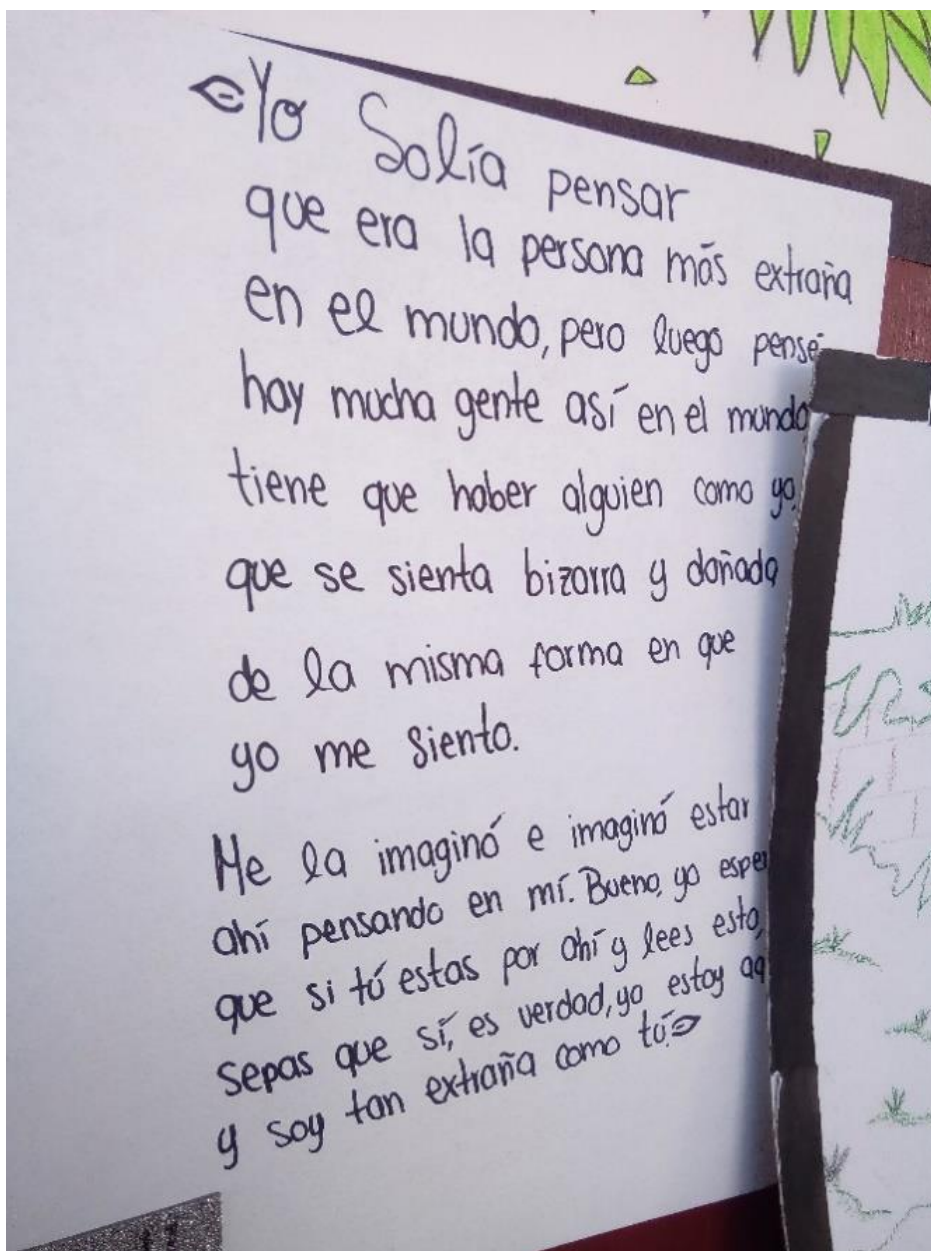 Yo Solía pensar
que era la persona más extraña
en el mundo, pero luego pensé
hay mucha gente así en el mundo
tiene que haber alguien como yo,
que se sienta bizarra y dañada
de la misma forma en que
yo me siento.
Me la imaginó e imaginó estar
ahí pensando en mí. Bueno, yo
que si tú estas por ahí y lees esto,
sepas que sí, es verdad, yo estoy
y soy tan extraña como tú.